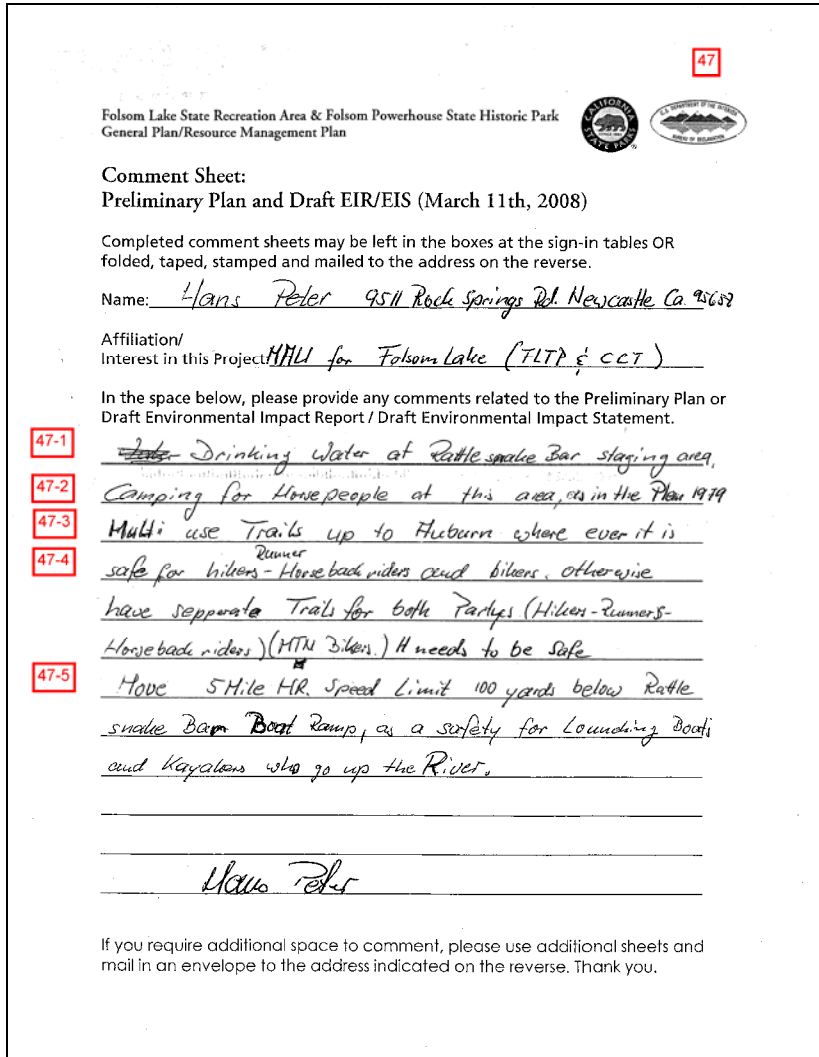 47
Folsom Lake State Recreation Area & Folsom Powerhouse State Historic Park
General Plan/Resource Management Plan
CALIFORNIA
STATE PARKS
U.S. DEPARTMENT OF THE INTERIOR
BUREAU OF RECLAMATION
Comment Sheet:
Preliminary Plan and Draft EIR/EIS (March 11th, 2008)
Completed comment sheets may be left in the boxes at the sign-in tables OR
folded, taped, stamped and mailed to the address on the reverse.
Name: Hans Peter 9511 Rock Springs Rd. Newcastle Ca. 95658
Affiliation/
Interest in this Project MMU for Folsom Lake (TLTP & CCT)
In the space below, please provide any comments related to the Preliminary Plan or
Draft Environmental Impact Report / Draft Environmental Impact Statement.
47-1
Drinking Water at Rattlesnake Bar staging area,
47-2
Camping for Horsepeople at this area, as in the Plan 1979
47-3
Multi use Trails up to Auburn where ever it is
47-4
Runner
safe for hikers - Horseback riders and bikers. otherwise
have sepperate Trails for both Partys (Hikers-Runners-
Horseback riders) (MTN Bikers.) It needs to be Safe
47-5
Move 5 Mile HR. Speed Limit 100 yards below Rattle
snake Bar Boat Ramp, as a safety for Lounching Boats
and Kayakers who go up the River.
Hans Peter
If you require additional space to comment, please use additional sheets and
mail in an envelope to the address indicated on the reverse. Thank you.